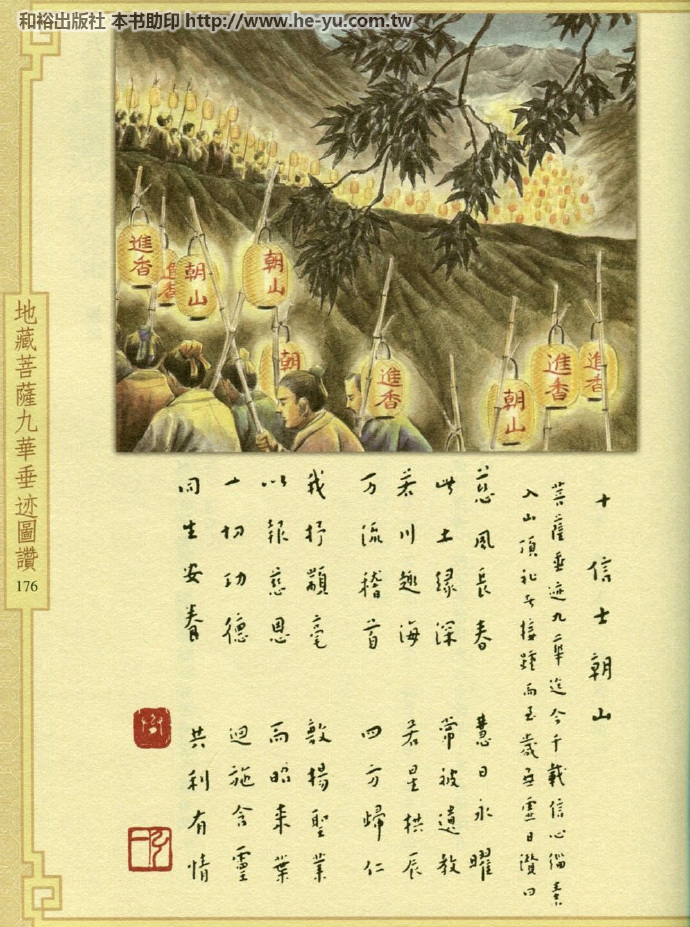 和裕出版社 本書助印 http://www.he-yu.com.tw
進香
進香
朝山
朝山
朝
進香
朝山
進香
進香
地藏菩薩九華垂迹圖讚
176
十 信士朝山
菩薩垂迹九華迄今千載信心緇素
入山頂礼者接踵而至歲無虛日讚曰
慈風長春 慧日永曜
此土緣深 常被遺教
若川趣海 若星拱辰
万流稽首 四方歸仁
我抒顓毫 敬揚聖業
以報慈恩 而昭来葉
一切功德 迴施含靈
同生安養 共利有情